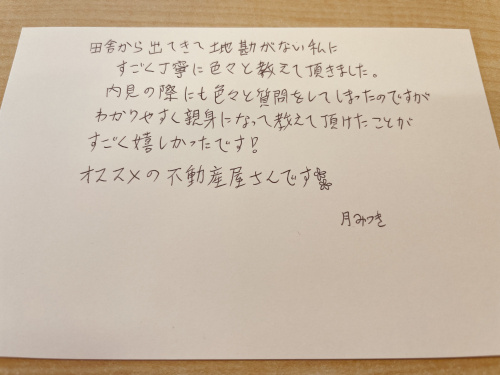 田舎から出てきて土地勘がない私に
すごく丁寧に色々と教えて頂きました。
内見の際にも色々と質問をしてしまったのですが
わかりやすく親身になって教えて頂けたことが
すごく嬉しかったです!
オススメの不動産屋さんです
月みつき